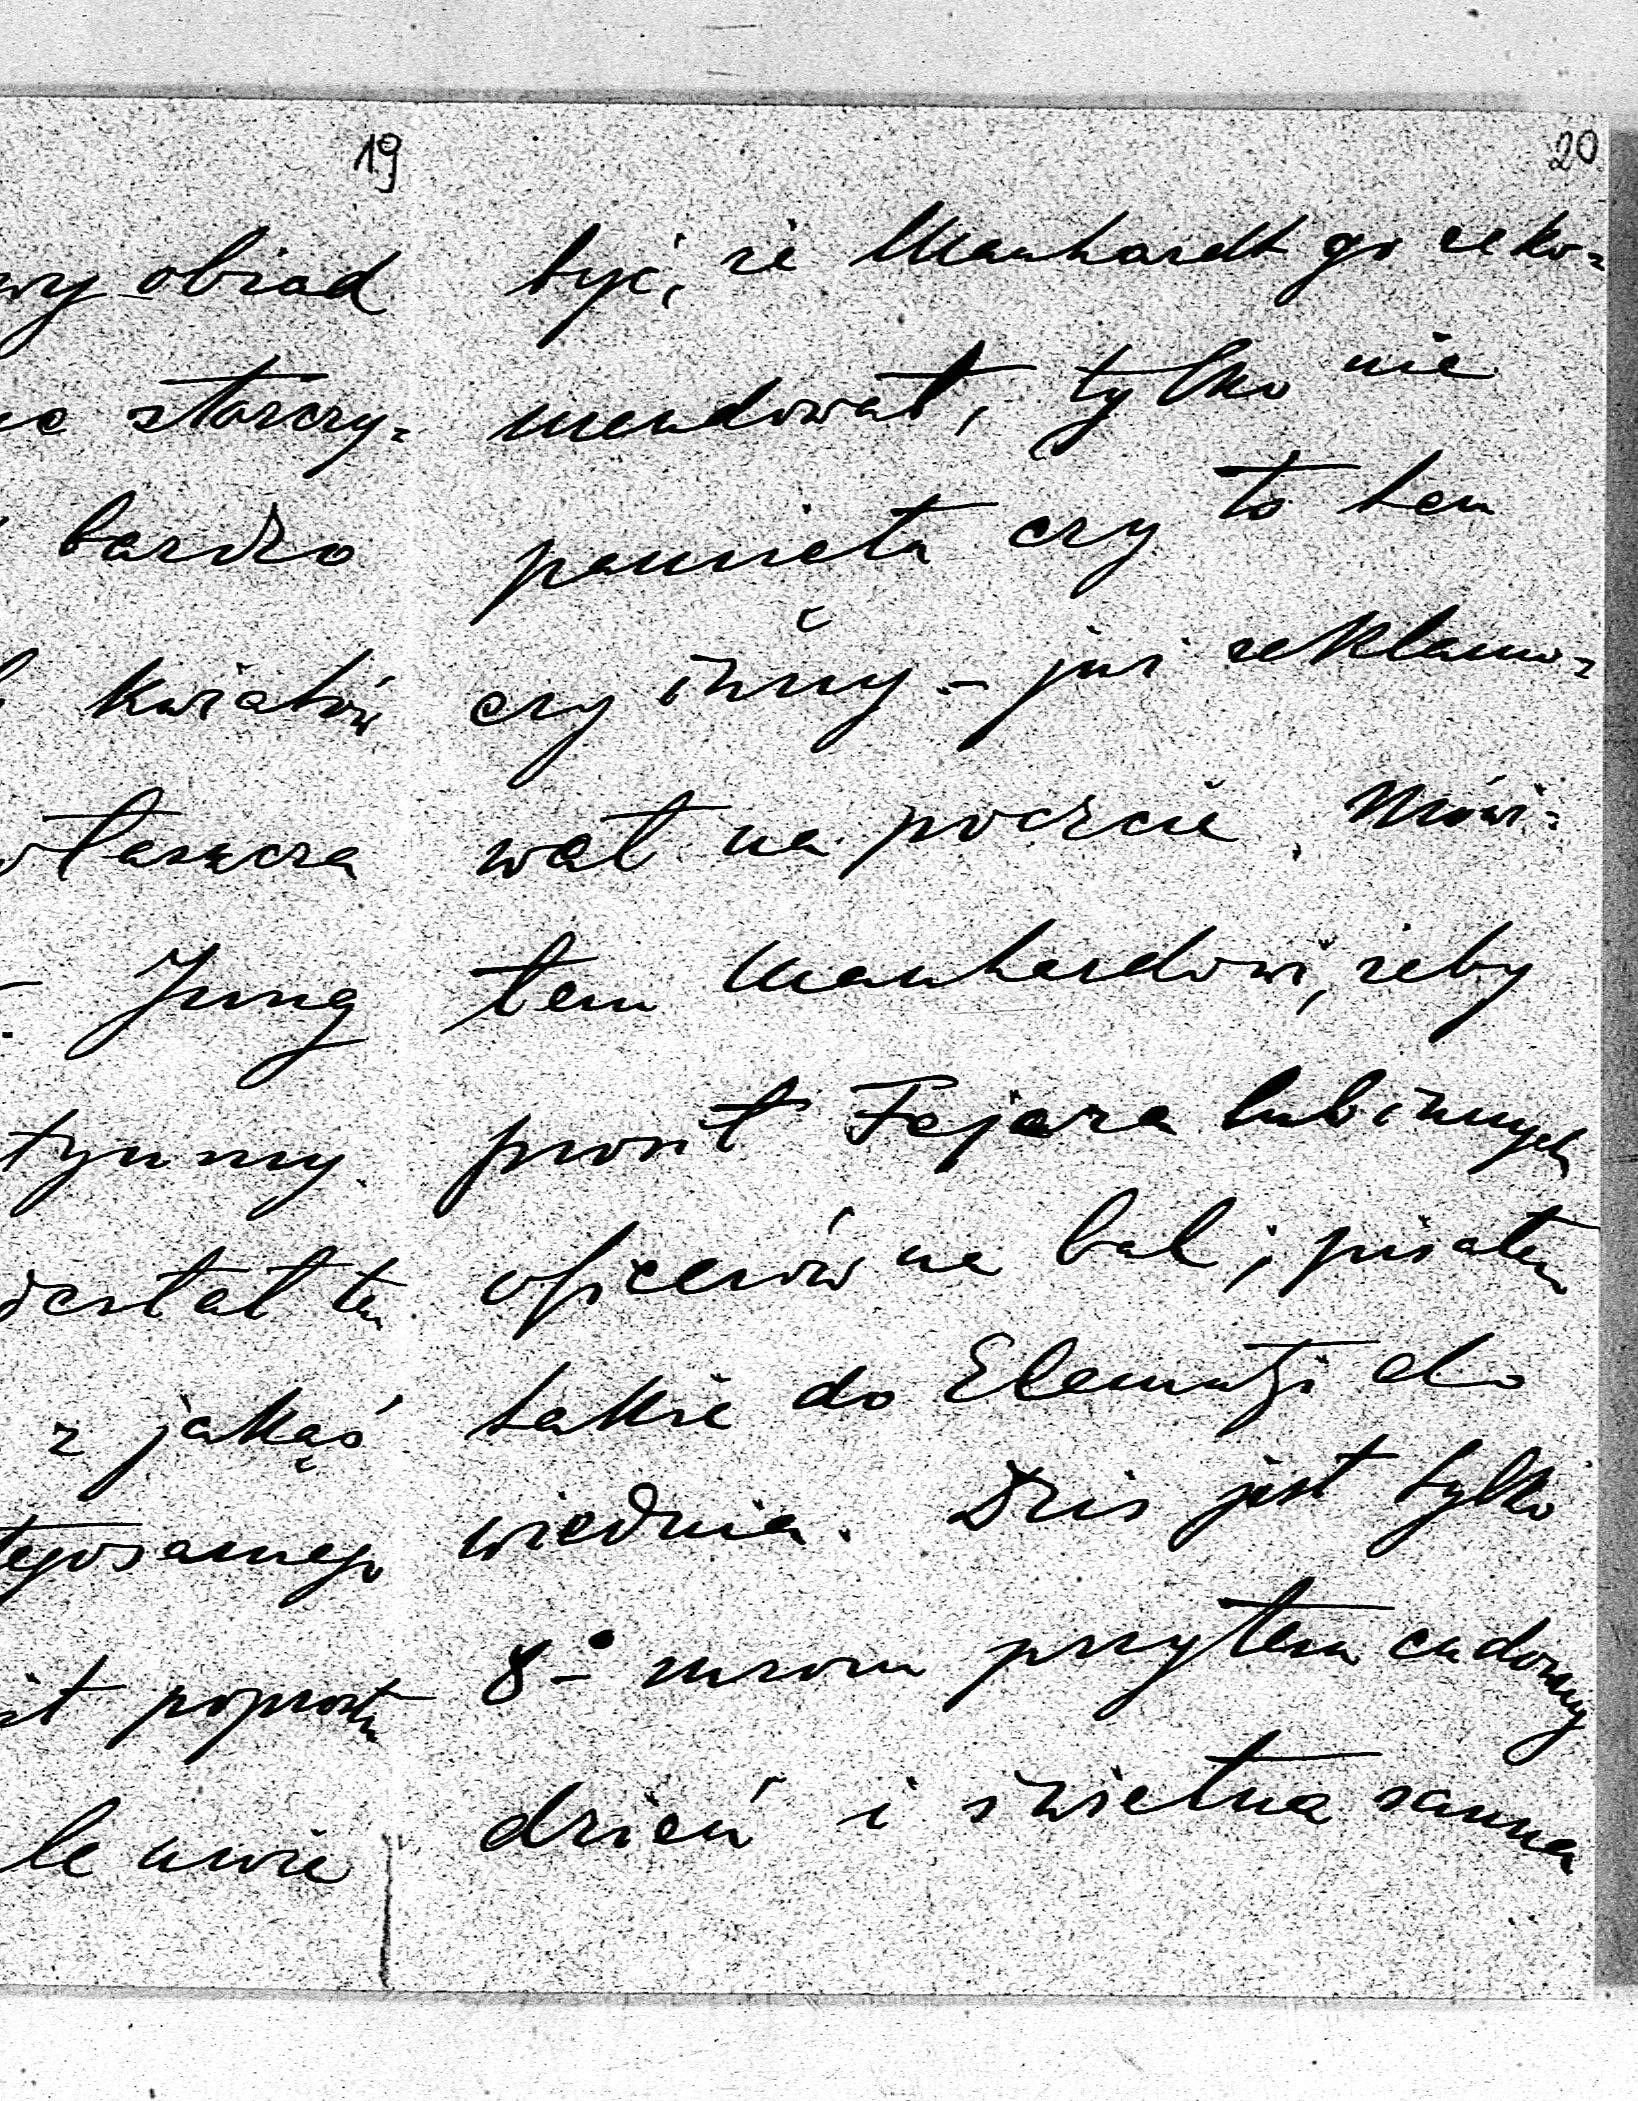 19
wy obiad
ne starczy=
bardzo
kwiatów
właszcza
Jung
tynny.
dostał ten
z jakąś
tegosamego
it poprostu
le może
20
być, że Manhardt go reko=
mendował, tylko nie
pamięta czy to ten
czy inny – już reklamo=
wał na poczcie. Mówi=
łem Manhardowi, żeby
prosił Fejera lub innych
oficerów na bal, pisałem
także do Elemutzi do
Wiednia. Dziś jest tylko
8° mrozu przytem cudowny
dzień i świetna sanna